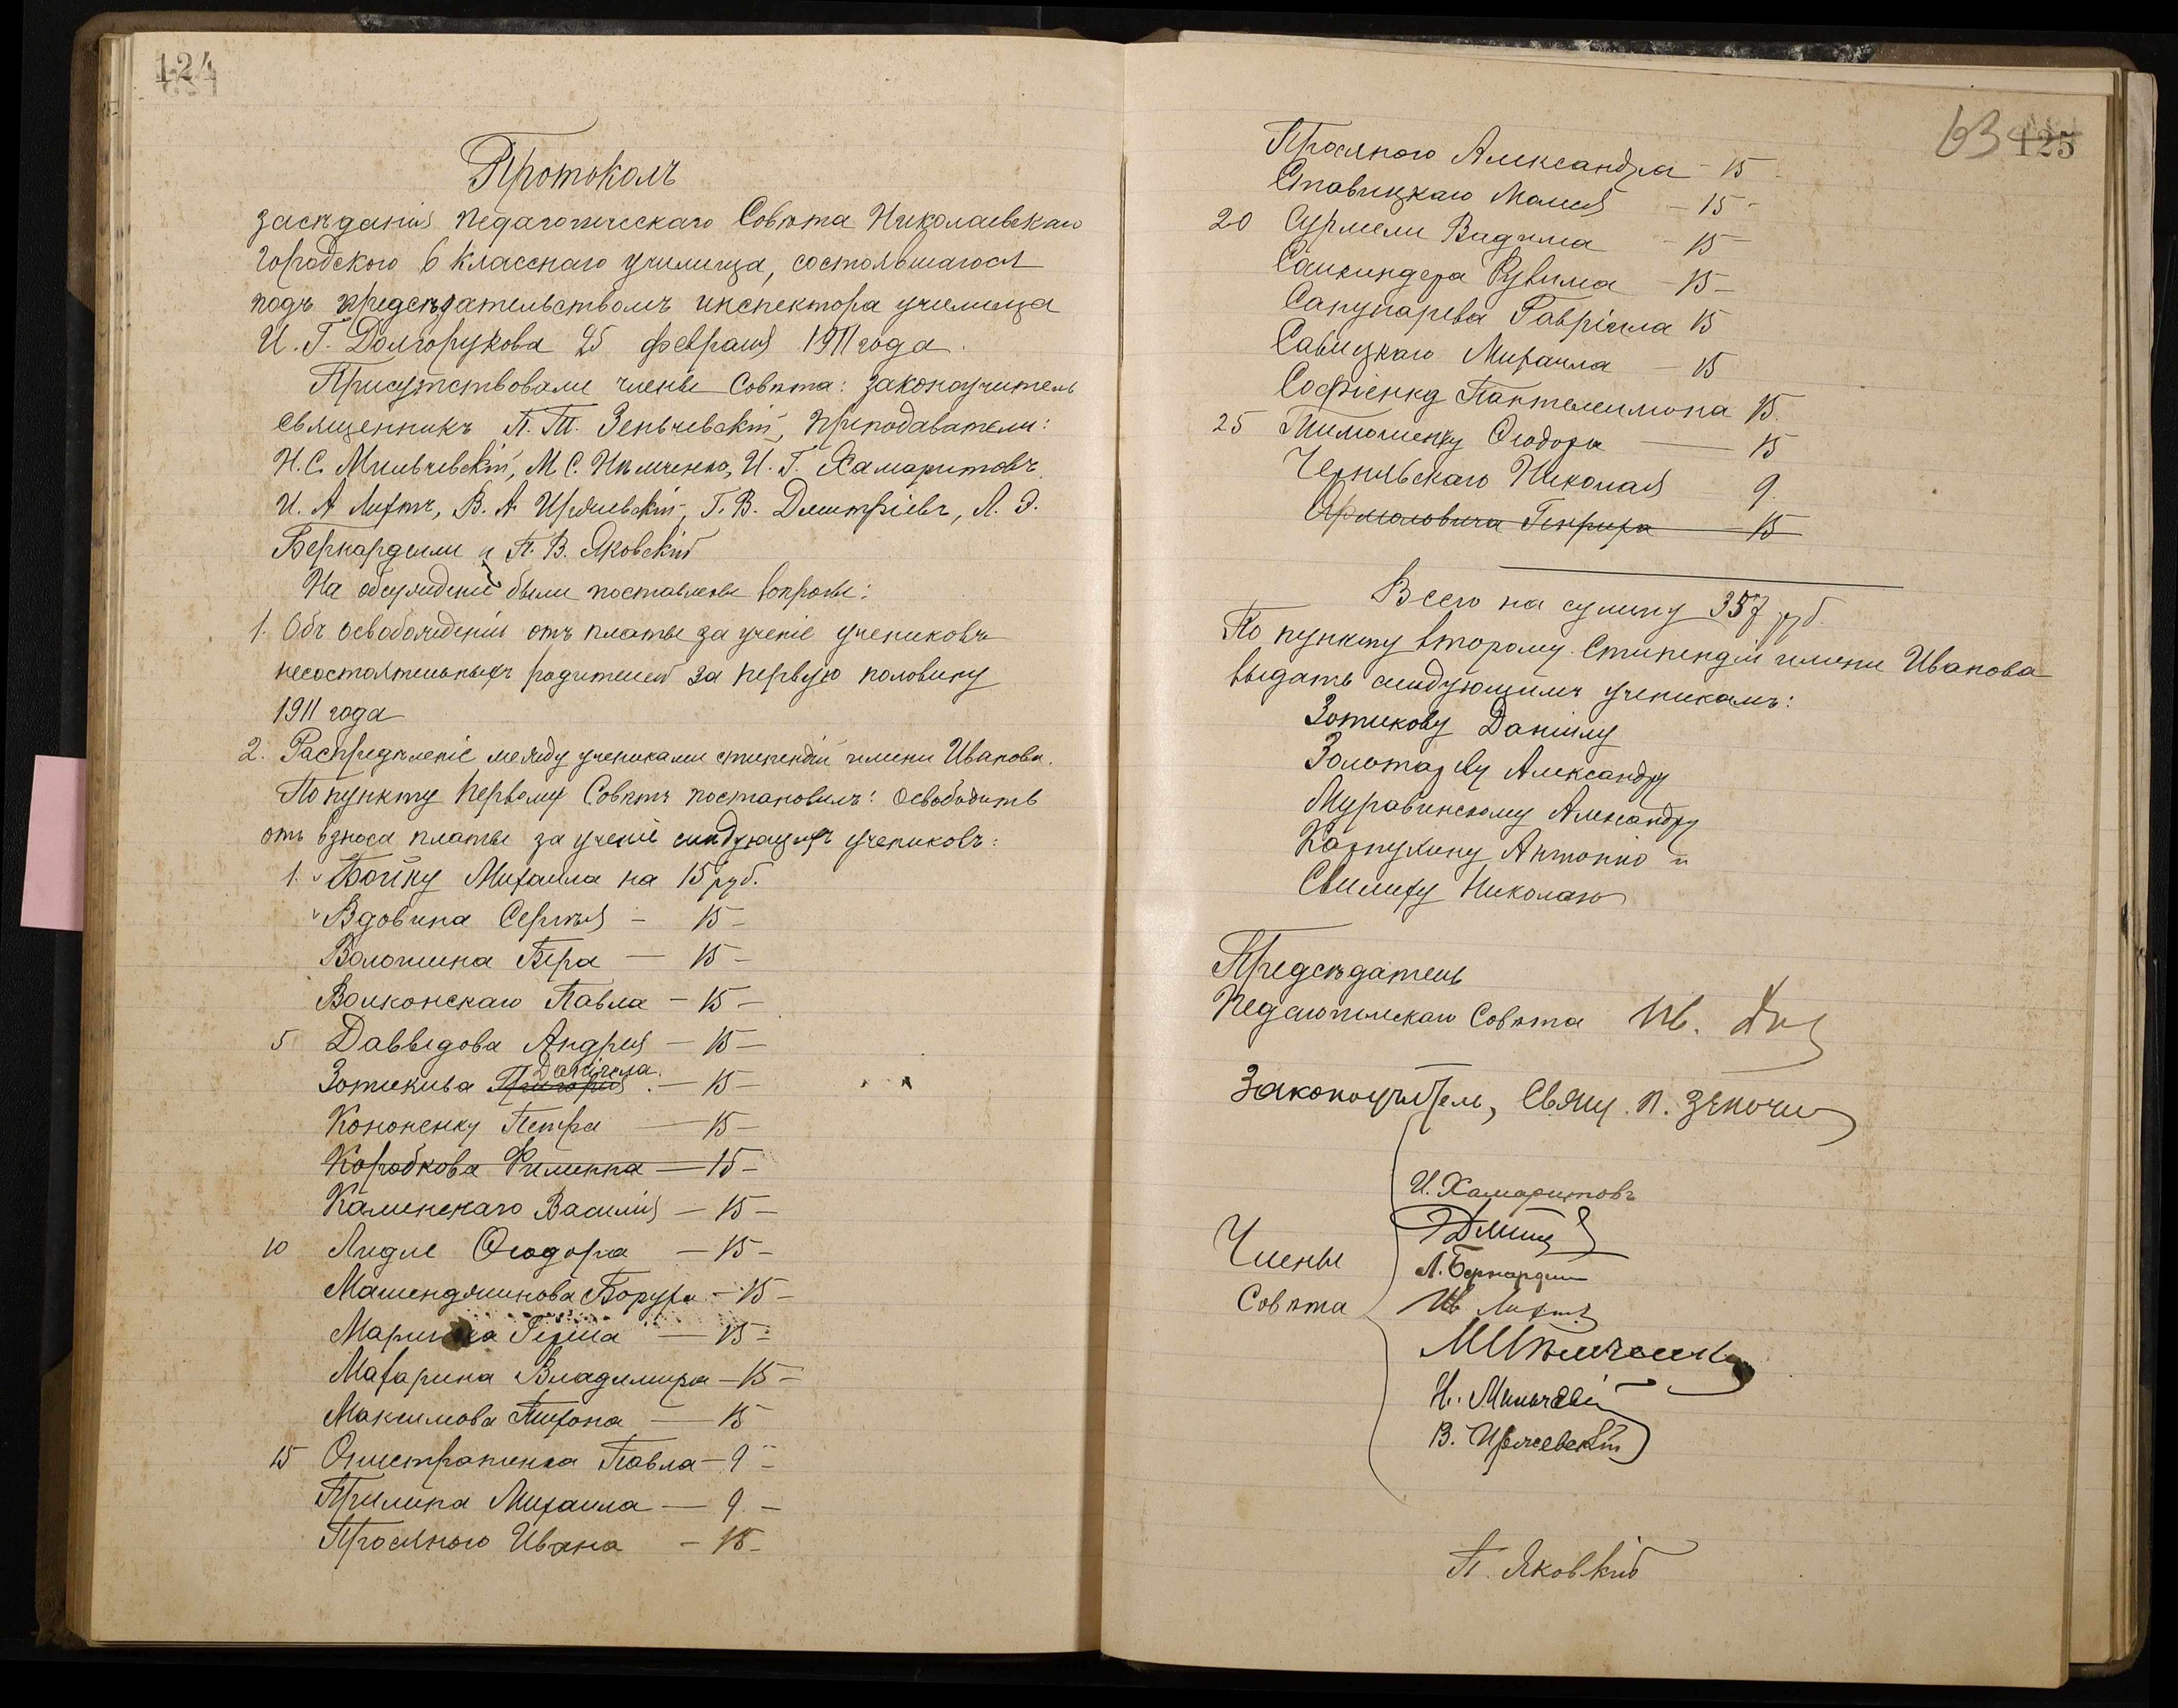 124
Протоколъ
засѣданія педагогическаго Совѣта Николаевскаго
городского 6 класснаго училища, состоявшагося
подъ предсѣдательствомъ инспектора училища
И. Г. Долгорукова 25 февраля 1911 года.
Присутствовали члены Совѣта: законоучитель
священникъ П. Т. Зеньчевскій, преподаватели:
Н. С. Мильчевскій, М. С. Ильченко, И. Г. Хамаритовъ,
И. А. Лихтъ, В. А. Иржиевскій, Г. В. Дмитріевъ, Л. Э.
Бернарделли и П. В. Яковскій
На обсужденіе были поставлены вопросы:
1. Объ освобожденіи отъ платы за ученіе учениковъ
несостоятельныхъ родителей за первую половину
1911 года
2. Распредѣленіе между учениками стипендій имени Иванова.
По пункту первому Совѣтъ постановилъ: освободить
отъ взноса платы за ученіе слѣдующихъ учениковъ:
1. Бойку Михаила на 15 руб.
Вдовина Сергѣя - 15 -
Волошина Бера - 15 -
Волконскаго Павла - 15 -
5 Давыдова Андрея - 15 -
Даніила
Зотикова Григорія - 15 -
Кононенку Петра - 15 -
Коробкова Филиппа - 15 -
Каменскаго Василія - 15 -
10 Лидле Ѳеодора - 15 -
Машенджинова Боруха - 15 -
Герша - 15 -
Махарина Владимира - 15 -
Максимова Тихона - 15
15 Онистратенка Павла - 9 -
Прилипа Михаила - 9 -
Просяного Ивана - 15 -
63 125
Просяного Александра - 15
Ставицкаго Моисея - 15 -
20 Сурмели Вадима - 15
Рувима - 15 -
Сапунарева Гавріила 15
Савицкаго Михаила - 15
Софіенку Пантелеимона 15
25 Тимошенку Ѳеодора - 15
Чернявскаго Николая 9.
Ярмоловича Генриха - 15
Всего на сумму 357 руб.
По пункту второму. Стипендіи имени Иванова
выдать слѣдующимъ ученикамъ:
Зотикову Даніилу
Золотареву Александру
Муравинскому Александру
Карпухину Антонію и
Свилиху Николаю
Предсѣдатель
Педагогическаго Совѣта Ив. Дол
Законоучитель, Свящ. П. Зеньче
И. Хамаритовъ
ГДмит
Члены
Л. Бернардел
Совѣта
Ив Лихтъ
МИльченко
Н. Мильчевскій
В. Иржиевскій
П. Яковскій